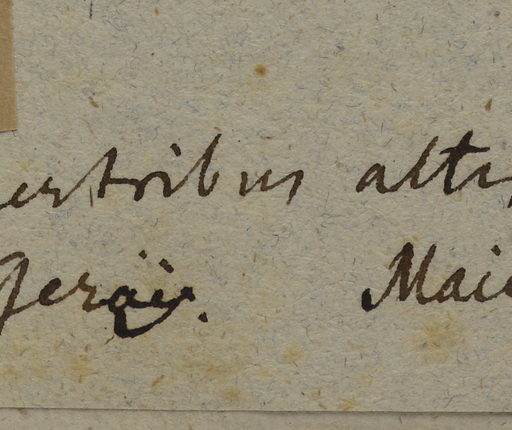 estribus alti
Geraës. Mai